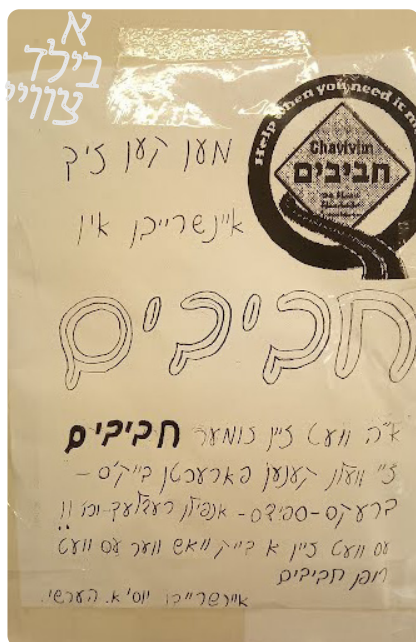 א
בילד
צוויי
Help when you need it
Chavivim
חביבים
מען קען זיך
איינשרייבן אין
חביבים
א"ה וועט זיין זומער חביבים
זיי וועלן קענען פארעכטן בייק'ס -
ברעקס-ספידס- אנפילן רעדלעך וכו' !!
עס וועט זיין א בייק וואש ווער עס וועט
רופן חביבים
איינשרייבן יוסי א. הערשי.